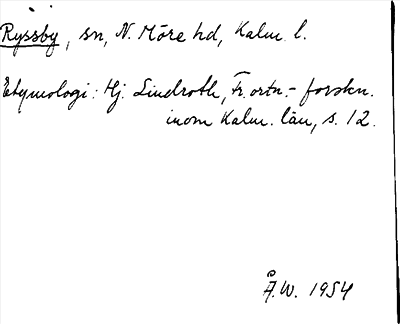 Ryssby, sn, N. Möre hd, Kalm. l.
Etymologi: Hj. Lindroth, Fr. ortn.-forskn.
inom Kalm. län, s. 12.
Å.W. 1954